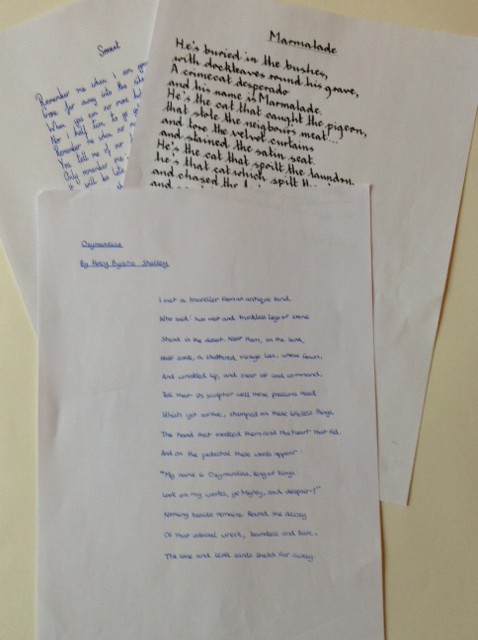 Sonnet
Remember me when I am
Gone far away into the
When you can no more
Nor I half turn to
Remember me when no
You tell me of our
Only remember me
It will be late
Marmalade
He's buried in the bushes,
with dockleaves round his grave,
A crimecat desperado
and his name is Marmalade.
He's the cat that caught the pigeon,
that stole the neigbours meat...
and tore the velvet curtains
and stained the satin seat.
He's the cat that spoilt the laundry
he's that cat which spilt the
and chased the
Ozymandias
By Percy Bysshe Shelley
I met a traveller from an antique land
Who said: two vast and trunkless legs of stone
Stand in the desert. Near them, on the sand,
Half sunk, a shattered visage lies, whose frown,
And wrinkled lip, and sneer of cold command,
Tell that its sculptor well those passions read
Which yet survive, stamped on these lifeless things,
The hand that mocked them and the heart that fed.
And on the pedestal these words appear:
"My name is Ozymandias, King of Kings:
Look on my works, ye Mighty, and despair!"
Nothing beside remains. Round the decay
Of that colossal wreck, boundless and bare,
The lone and level sands stretch far away